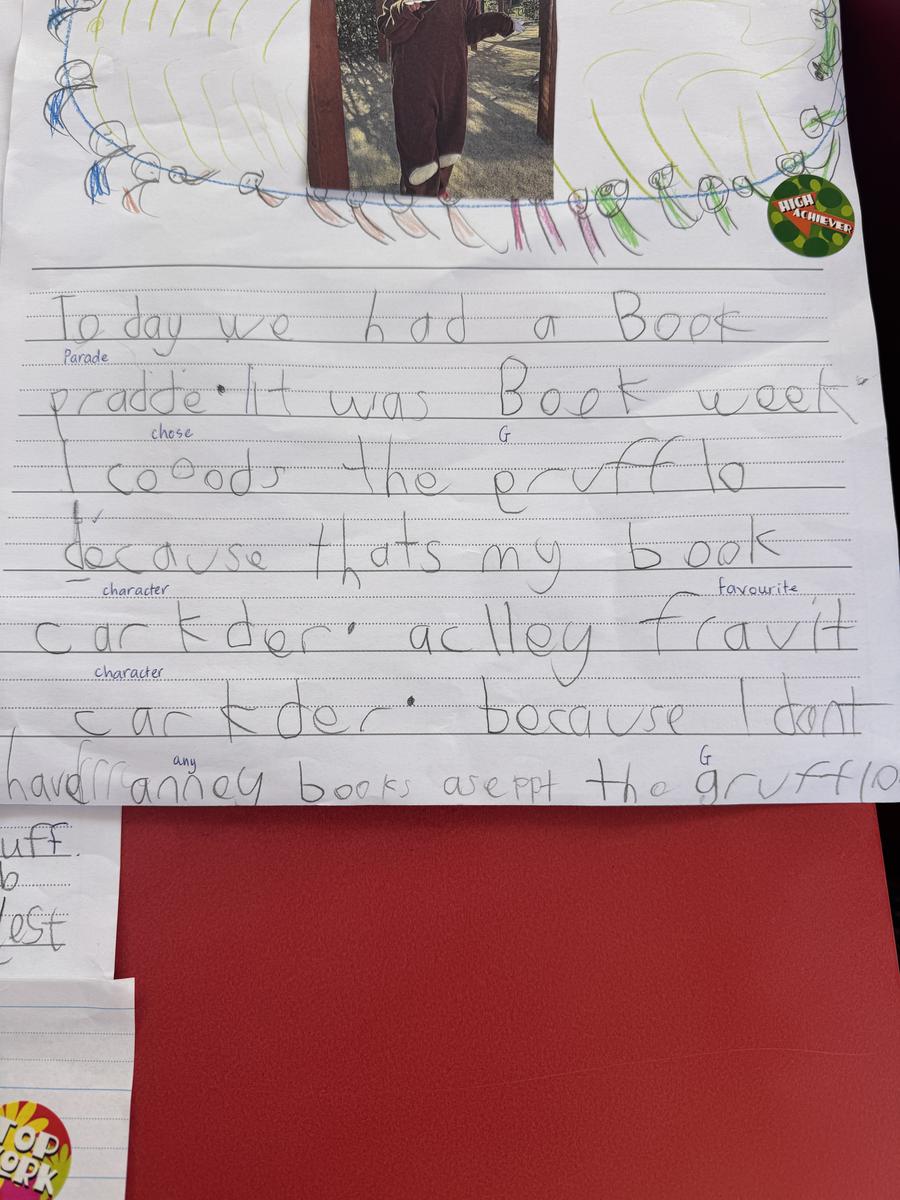 HIGH
ACHIEVER
Today we had a Book
Parade
pradde. It was Book week
chose G
I cooods the grufflo
because thats my book
character favourite
carkder. aclley fravit
character
carkder. because I dont
any G
have anney books aseppt the grufflo
uff.
b
est
TOP
WORK